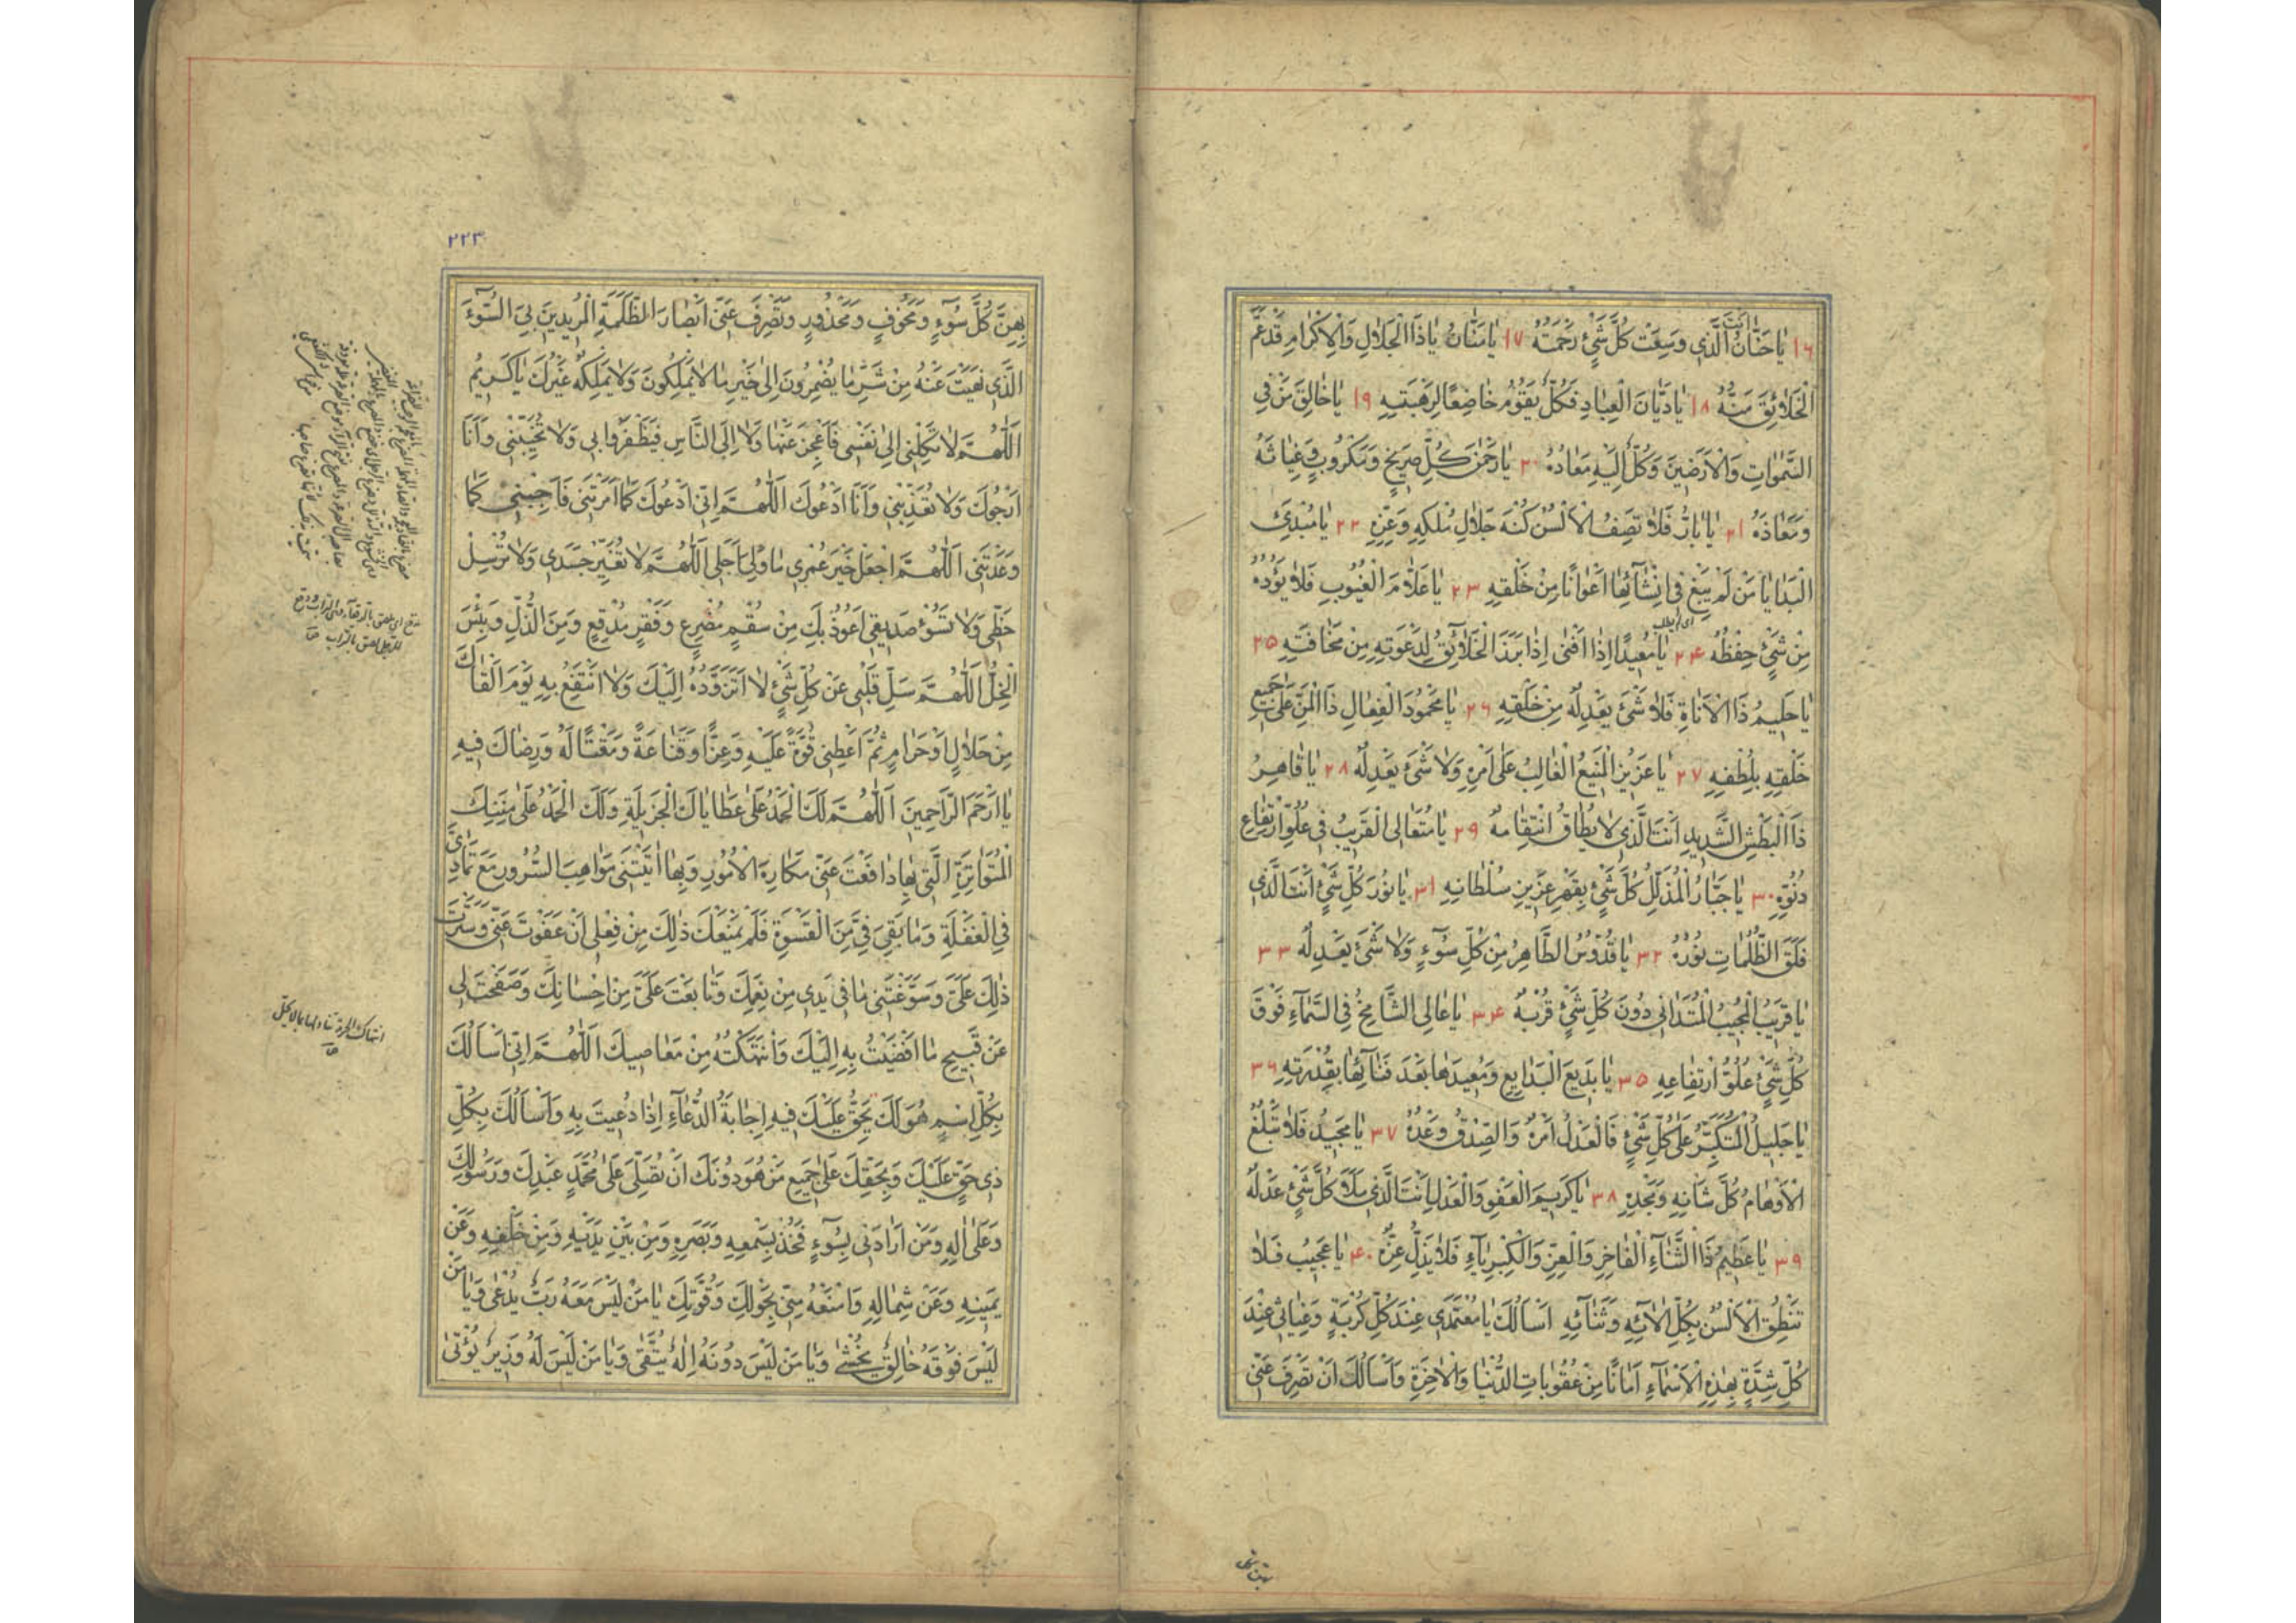 انت
١٦ يَا حَنَّانُ الَّذِي وَسِعَتْ كُلَّ شَيْءٍ رَحْمَتُهُ ١٧ يَا مَنَّانُ يَا ذَا الْجَلَالِ وَالْاِكْرَامِ قَدْ عَمَّ
الْخَلَائِقَ مَنُّهُ ١٨ يَا دَيَّانَ الْعِبَادِ فَكُلٌّ يَقُومُ خَاضِعًا لِرَهْبَتِهِ ١٩ يَا خَالِقَ مَنْ فِي
السَّمٰوَاتِ وَالْاَرَضِينَ وَكُلٌّ اِلَيْهِ مَعَادُهُ ٢٠ يَا رَحْمٰنَ كُلِّ صَرِيخٍ وَمَكْرُوبٍ وَغِيَاثَهُ
وَمَعَاذَهُ ٢١ يَا بَارُّ فَلَا تَصِفُ الْاَلْسُنُ كُنْهَ جَلَالِ مُلْكِهِ وَعِزِّهِ ٢٢ يَا مُبْدِئَ
الْبَدَايَا مَنْ لَمْ يَبْغِ فِي اِنْشَائِهَا اَعْوَانًا مِنْ خَلْقِهِ ٢٣ يَا عَلَّامَ الْغُيُوبِ فَلَا يَؤُدُهُ
مِنْ شَيْءٍ حِفْظُهُ ٢٤ يَا مُعِيدًا اِذَا اَفْنٰى اِذَا بَرَزَ الْخَلَائِقُ لِدَعْوَتِهِ مِنْ مَخَافَتِهِ ٢٥
يَا حَلِيمُ ذَا الْاَنَاةِ فَلَا شَيْءَ يَعْدِلُهُ مِنْ خَلْقِهِ ٢٦ يَا مَحْمُودَ الْفِعَالِ ذَا الْمَنِّ عَلٰى جَمِيعِ
خَلْقِهِ بِلُطْفِهِ ٢٧ يَا عَزِيزُ الْمَنِيعُ الْغَالِبُ عَلٰى اَمْرِهِ وَلَا شَيْءَ يَعْدِلُهُ ٢٨ يَا قَاهِرُ
ذَا الْبَطْشِ الشَّدِيدِ اَنْتَ الَّذِي لَا يُطَاقُ انْتِقَامُهُ ٢٩ يَا مُتَعَالِي الْقَرِيبُ فِي عُلُوِّ ارْتِفَاعِ
دُنُوِّهِ ٣٠ يَا جَبَّارُ الْمُذَلِّلُ كُلَّ شَيْءٍ بِقَهْرِ عَزِيزِ سُلْطَانِهِ ٣١ يَا نُورَ كُلِّ شَيْءٍ اَنْتَ الَّذِي
فَلَقَ الظُّلُمَاتِ نُورُهُ ٣٢ يَا قُدُّوسُ الطَّاهِرُ مِنْ كُلِّ سُوءٍ وَلَا شَيْءَ يَعْدِلُهُ ٣٣
يَا قَرِيبُ الْمُجِيبُ الْمُتَدَانِي دُونَ كُلِّ شَيْءٍ قُرْبُهُ ٣٤ يَا عَالِي الشَّامِخُ فِي السَّمَاءِ فَوْقَ
كُلِّ شَيْءٍ عُلُوُّ ارْتِفَاعِهِ ٣٥ يَا بَدِيعَ الْبَدَايِعِ وَمُعِيدَهَا بَعْدَ فَنَائِهَا بِقُدْرَتِهِ ٣٦
يَا جَلِيلُ الْمُتَكَبِّرُ عَلٰى كُلِّ شَيْءٍ فَالْعَدْلُ اَمْرُهُ وَالصِّدْقُ وَعْدُهُ ٣٧ يَا مَجِيدُ فَلَا تَبْلُغُ
الْاَوْهَامُ كُلَّ شَانِهِ وَمَجْدِهِ ٣٨ يَا كَرِيمَ الْعَفْوِ وَالْعَدْلِ اَنْتَ الَّذِي مَلَاَ كُلَّ شَيْءٍ عَدْلُهُ
٣٩ يَا عَظِيمُ ذَا الثَّنَاءِ الْفَاخِرِ وَالْعِزِّ وَالْكِبْرِيَاءِ فَلَا يَذِلُّ عِزُّهُ ٤٠ يَا عَجِيبُ فَلَا
تَنْطِقُ الْاَلْسُنُ بِكُلِّ اٰلَائِهِ وَثَنَائِهِ اَسْاَلُكَ يَا مُعْتَمَدِي عِنْدَ كُلِّ كُرْبَةٍ وَغِيَاثِي عِنْدَ
كُلِّ شِدَّةٍ بِهٰذِهِ الْاَسْمَاءِ اَمَانًا مِنْ عُقُوبَاتِ الدُّنْيَا وَالْاٰخِرَةِ وَاَسْاَلُكَ اَنْ تَصْرِفَ عَنِّي
٢٢٣
بِهِنَّ كُلَّ سُوءٍ وَمَخُوفٍ وَمَحْذُورٍ وَتَصْرِفَ عَنِّي اَبْصَارَ الظَّلَمَةِ الْمُرِيدِينَ بِيَ السُّوءَ
الَّذِي نَهَيْتَ عَنْهُ مِنْ شَرِّ مَا يُضْمِرُونَ اِلٰى خَيْرِ مَا لَا يَمْلِكُونَ وَلَا يَمْلِكُهُ غَيْرُكَ يَا كَرِيمُ
اَللّٰهُمَّ لَا تَكِلْنِي اِلٰى نَفْسِي فَاَعْجِزَ عَنْهَا وَلَا اِلَى النَّاسِ فَيَظْفَرُوا بِي وَلَا تُخَيِّبْنِي وَاَنَا
اَرْجُوكَ وَلَا تُعَذِّبْنِي وَاَنَا اَدْعُوكَ اَللّٰهُمَّ اِنِّي اَدْعُوكَ كَمَا اَمَرْتَنِي فَاَجِبْنِي كَمَا
وَعَدْتَنِي اَللّٰهُمَّ اجْعَلْ خَيْرَ عُمْرِي مَا وَلِيَ اَجَلِي اَللّٰهُمَّ لَا تُغَيِّرْ جَسَدِي وَلَا تُرْسِلْ
حَظِّي وَلَا تَسُؤْ صَدِيقِي اَعُوذُ بِكَ مِنْ سُقْمٍ مُصْرِعٍ وَفَقْرٍ مُدْقِعٍ وَمِنَ الذُّلِّ وَبِئْسَ
الْخِلُّ اَللّٰهُمَّ سَلِّ قَلْبِي عَنْ كُلِّ شَيْءٍ لَا اَتَزَوَّدُهُ اِلَيْكَ وَلَا اَنْتَفِعُ بِهِ يَوْمَ اَلْقَاكَ
مِنْ حَلَالٍ اَوْ حَرَامٍ ثُمَّ اَعْطِنِي قُوَّةً عَلَيْهِ وَعِزًّا وَقَنَاعَةً وَمَقْتًا لَهُ وَرِضَاكَ فِيهِ
يَا اَرْحَمَ الرَّاحِمِينَ اَللّٰهُمَّ لَكَ الْحَمْدُ عَلٰى عَطَايَاكَ الْجَزِيلَةِ وَلَكَ الْحَمْدُ عَلٰى مِنَنِكَ
الْمُتَوَاتِرَةِ الَّتِي بِهَا دَافَعْتَ عَنِّي مَكَارِهَ الْاُمُورِ وَبِهَا اٰتَيْتَنِي مَوَاهِبَ السُّرُورِ مَعَ تَمَادِيَّ
فِي الْغَفْلَةِ وَمَا بَقِيَ فِيَّ مِنَ الْقَسْوَةِ فَلَمْ يَمْنَعْكَ ذٰلِكَ مِنْ فِعْلِي اَنْ عَفَوْتَ عَنِّي وَسَتَرْتَ
ذٰلِكَ عَلَيَّ وَسَوَّغْتَنِي مَا فِي يَدِي مِنْ نِعَمِكَ وَتَابَعْتَ عَلَيَّ مِنْ اِحْسَانِكَ وَصَفَحْتَ لِي
عَنْ قَبِيحِ مَا اَفْضَيْتُ بِهِ اِلَيْكَ وَانْتَهَكْتُهُ مِنْ مَعَاصِيكَ اَللّٰهُمَّ اِنِّي اَسْاَلُكَ
بِكُلِّ اسْمٍ هُوَ لَكَ يَحِقُّ عَلَيْكَ فِيهِ اِجَابَةُ الدُّعَاءِ اِذَا دُعِيتَ بِهِ وَاَسْاَلُكَ بِكُلِّ
ذِي حَقٍّ عَلَيْكَ وَبِحَقِّكَ عَلٰى جَمِيعِ مَنْ هُوَ دُونَكَ اَنْ تُصَلِّيَ عَلٰى مُحَمَّدٍ عَبْدِكَ وَرَسُولِكَ
وَعَلٰى اٰلِهِ وَمَنْ اَرَادَنِي بِسُوءٍ فَخُذْ بِسَمْعِهِ وَبَصَرِهِ وَمِنْ بَيْنِ يَدَيْهِ وَمِنْ خَلْفِهِ وَعَنْ
يَمِينِهِ وَعَنْ شِمَالِهِ وَامْنَعْهُ مِنِّي بِحَوْلِكَ وَقُوَّتِكَ يَا مَنْ لَيْسَ مَعَهُ رَبٌّ يُدْعٰى وَيَا مَنْ
لَيْسَ فَوْقَهُ خَالِقٌ يُخْشٰى وَيَا مَنْ لَيْسَ دُونَهُ اِلٰهٌ يُتَّقٰى وَيَا مَنْ لَيْسَ لَهُ وَزِيرٌ يُؤْتٰى